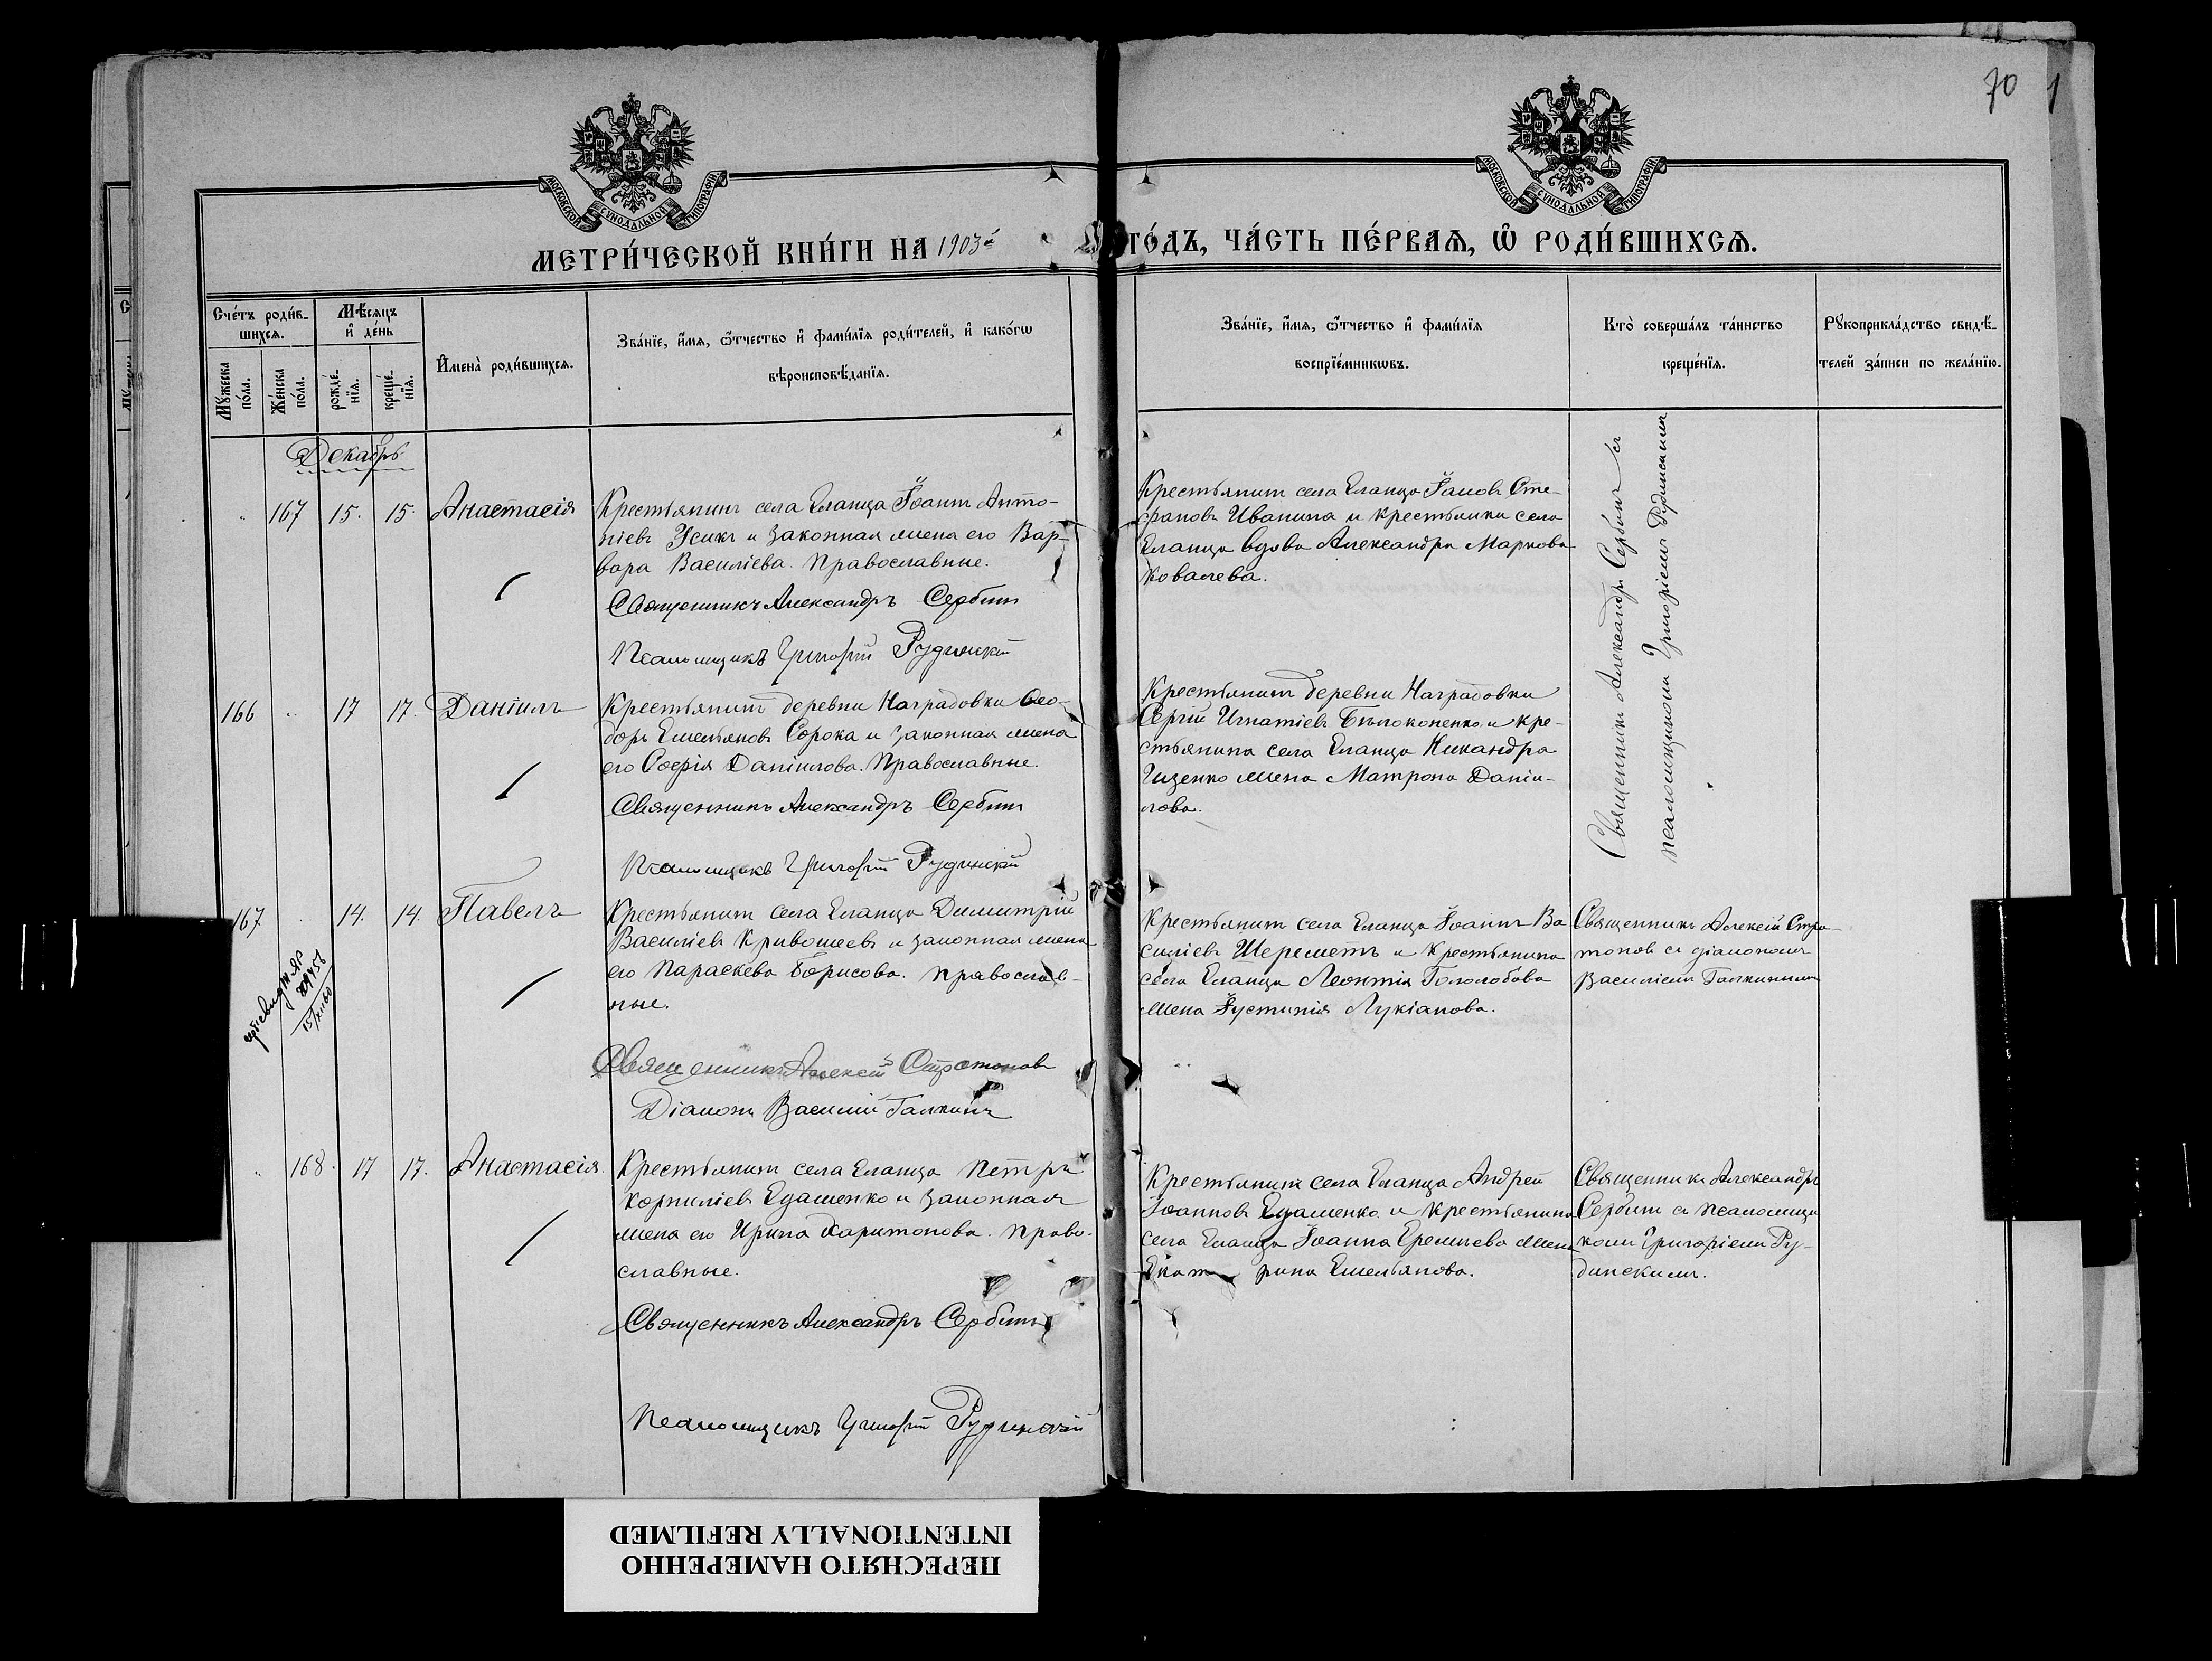 70
МОСКОВСКОЙ СѴНОДАЛЬНОЙ ТИПОГРАФІИ
МОСКОВСКОЙ СѴНОДАЛЬНОЙ ТИПОГРАФІИ
МЕТРИ́ЧЕСКОЙ КНИ́ГИ НА 1903й
ГО́ДЪ, ЧА́СТЬ ПЕ́РВАѦ, Ѽ РОДИ́ВШИХСѦ.
Сче́тъ роди́в-
шихсѧ.
Мꙋ́жеска по́ла.
Же́нска по́ла.
Мѣ́сѧцъ
и҆ де́нь
рожде́-
нїѧ.
креще́-
нїѧ.
И҆мена̀ роди́вшихсѧ.
Зва́нїе, и҆́мѧ, ѻ҆́тчество и҆ фами́лїѧ роди́телей, и҆ како́гѡ
вѣроисповѣ́данїѧ.
Зва́нїе, и҆́мѧ, ѻ҆́тчество и҆ фами́лїѧ
воспрїе́мникѡвъ.
Кто̀ соверша́лъ та́инство
креще́нїѧ.
Рꙋкоприкла́дство свидѣ́-
телей за́писи по жела́нїю.
Декабрь
167 15. 15. Анастасія
Крестьянинъ села Еланца Іоаннъ Анто-
ніевъ Усикъ и законная жена его Вар-
вара Василіева. Православные.
Священникъ Александръ Сербинъ
Псаломщикъ Григорій Рудинскій
Крестьянинъ села Еланца Іаковъ Сте-
фановъ Иванина и крестьянки села
Еланца вдова Александра Маркова
Ковалева.
Священникъ Александръ Сербинъ съ
псаломщикомъ Григоріемъ Рудинскимъ
166 17 17. Даніилъ
Крестьянинъ деревни Наградовки Ѳео-
доръ Емельяновъ Сорока и законная жена
его Софія Даніилова. Православные.
Священникъ Александръ Сербинъ
Псаломщикъ Григорій Рудинскій
Крестьянинъ деревни Наградовки
Сергій Игнатіевъ Бѣлоконенко и кре-
стьянина села Еланца Никандра
Гиденко жена Матрона Даніи-
лова.
167 14. 14 Павелъ
Крестьянинъ села Еланца Димитрій
Василіевъ Кривошеевъ и законная жена
его Параскева Борисова. Православ-
ные.
Священникъ Алексей Стратоновъ
Діаконъ Василій Галкинъ
Крестьянинъ села Еланца Іоаннъ Ва
силіевъ Шереметъ и крестьянина
села Еланца Леонтія Гололобова
жена Іустинія Лукіанова.
Священникъ Алексій Стра-
тоновъ съ діакономъ
Василіемъ Галкинымъ
168. 17 17. Анастасія.
Крестьянинъ села Еланца Петръ
Корниліевъ Едашенко и законная
жена его Ирина Харитонова. Право-
славные.
Священникъ Александръ Сербинъ
Псаломщикъ Григорій Рудинскій
Крестьянинъ села Еланца Андрей
Іоанновъ Едашенко и крестьянина
села Еланца Іоанна Еремѣева жена
Екат рина Емельянова.
Священникъ Александръ
Сербинъ съ псаломщи
комъ Григоріемъ Ру-
динскимъ.
ПЕРЕСНЯТО НАМЕРЕННО
INTENTIONALLY REFILMED